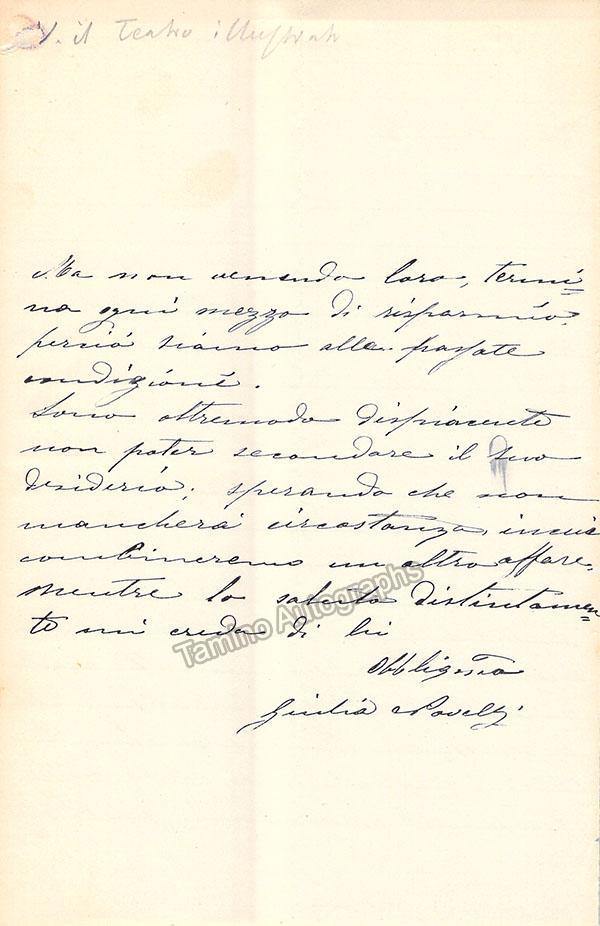 V. il Teatro illustrato
Ma non venendo loro, termi=
na ogni mezzo di risparmio,
perciò siamo alle passate
condizioni.
Sono oltremodo dispiacente
non poter secondare il suo
desiderio; sperando che non
mancherà circostanza, in cui
combineremo un altro affare,
mentre lo saluto distintamen=
te mi creda di lei
Obbligata
Giulia Novelli
Tamino Autographs